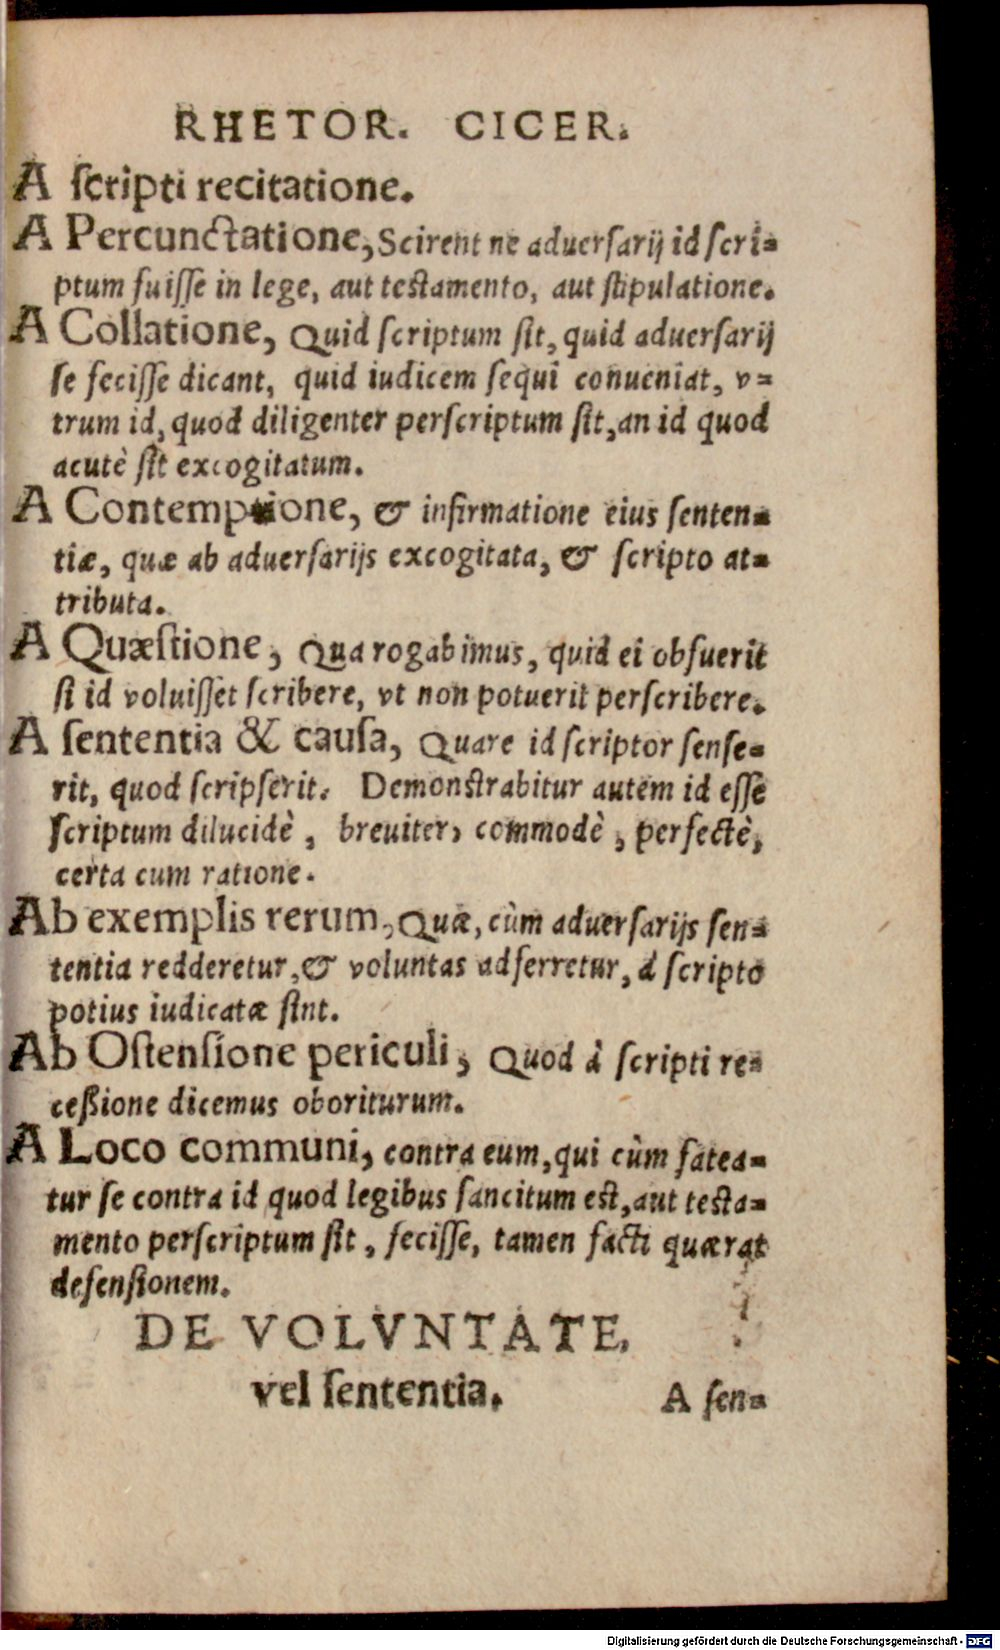 RHETOR. CICER.
A ſcripti recitatione.
A Percunctatione, Scirent ne aduerſarij id ſcri-
ptum fuiſſe in lege, aut teſtamento, aut ſtipulatione.
A Collatione, Quid ſcriptum ſit, quid aduerſarij
ſe feciſſe dicant, quid iudicem ſequi conueniat, v-
trum id, quod diligenter perſcriptum ſit, an id quod
acutè ſit excogitatum.
A Contemptione, & infirmatione eius ſenten-
tiæ, quæ ab aduerſarijs excogitata, & ſcripto at-
tributa.
A Quæſtione, Qua rogabimus, quid ei obfuerit
ſi id voluiſſet ſcribere, vt non potuerit perſcribere.
A ſententia & cauſa, Quare id ſcriptor ſenſe-
rit, quod ſcripſerit. Demonſtrabitur autem id eſſe
ſcriptum dilucidè, breuiter, commodè, perfectè,
certa cum ratione.
Ab exemplis rerum, Quæ, cùm aduerſarijs ſen-
tentia redderetur, & voluntas adferretur, à ſcripto
potius iudicatæ ſint.
Ab Oſtenſione periculi, Quod à ſcripti re-
ceßione dicemus oboriturum.
A Loco communi, contra eum, qui cùm fatea-
tur ſe contra id quod legibus ſancitum eſt, aut teſta-
mento perſcriptum ſit, feciſſe, tamen facti quærat
defenſionem.
DE VOLVNTATE,
vel ſententia.
A ſen-
Digitalisierung gefördert durch die Deutsche Forschungsgemeinschaft - DFG